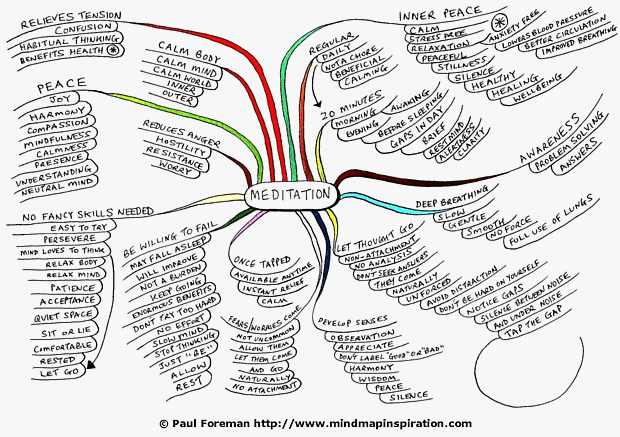 RELIEVES TENSION
CONFUSION
HABITUAL THINKING
BENEFITS HEALTH
PEACE
JOY
HARMONY
COMPASSION
MINDFULNESS
CALMNESS
PRESENCE
UNDERSTANDING
NEUTRAL MIND
CALM BODY
CALM MIND
CALM WORLD
INNER
OUTER
REDUCES ANGER
HOSTILITY
RESISTANCE
WORRY
REGULAR
DAILY
NOT A CHORE
BENEFICIAL
CALMING
INNER PEACE
CALM
STRESS FREE
RELAXATION
PEACEFUL
STILLNESS
SILENCE
HEALTHY
HEALING
WELLBEING
ANXIETY FREE
LOWERS BLOOD PRESSURE
BETTER CIRCULATION
IMPROVED BREATHING
20 MINUTES
MORNING
EVENING
AWAKING
BEFORE SLEEPING
GAPS IN DAY
BRIEF
REST MIND
ALERTNESS
CLARITY
AWARENESS
PROBLEM SOLVING
ANSWERS
MEDITATION
DEEP BREATHING
SLOW
GENTLE
SMOOTH
NO FORCE
FULL USE OF LUNGS
NO FANCY SKILLS NEEDED
EASY TO TRY
PERSEVERE
MIND LOVES TO THINK
RELAX BODY
RELAX MIND
PATIENCE
ACCEPTANCE
QUIET SPACE
SIT OR LIE
COMFORTABLE
RESTED
LET GO
BE WILLING TO FAIL
MAY FALL ASLEEP
WILL IMPROVE
NOT A BURDEN
KEEP GOING
ENORMOUS BENEFITS
DONT TRY TOO HARD
NO EFFORT
SLOW MIND
STOP THINKING
JUST "BE"
ALLOW
REST
ONCE TAPPED
AVAILABLE ANYTIME
INSTANT RELIEF
CALM
FEARS/WORRIES COME
NOT UNCOMMON
ALLOW THEM
LET THEM COME
AND GO
NATURALLY
NO ATTACHMENT
DEVELOP SENSES
OBSERVATION
APPRECIATE
DON'T LABEL "GOOD" OR "BAD"
HARMONY
WISDOM
PEACE
SILENCE
LET THOUGHT GO
NON-ATTACHMENT
NO ANALYSIS
DON'T SEEK ANSWERS
THEY COME
NATURALLY
UNFORCED
AVOID DISTRACTION
DON'T BE HARD ON YOURSELF
NOTICE GAPS
SILENCE BETWEEN NOISE
AND UNDER NOISE
TAP THE GAP
© Paul Foreman http://www.mindmapinspiration.com